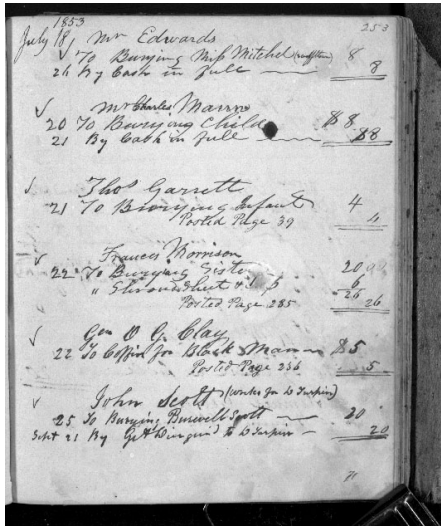 1853
253
July 18 Mr Edwards
To Burying Miss Mitchel 8
26 By Cash in full 8
✓ Mr Charles Mann
20 To Burying Child $8
21 By Cash in full $8
✓ Thos Garrett
21 To Burying Infant 4
Posted Page 39 4
✓ Frances Morrison
22 To Burying Sister 20,00
" Shroud Sheet & 6
26
Posted Page 285 26
✓ Geo O G Clay
22 To Coffin for Black Man $5
Posted Page 236 5
✓ John Scott (works for W Turpin)
25 To Burying Burwell Scott 20
Sept 21 By to W Turpin 20
71